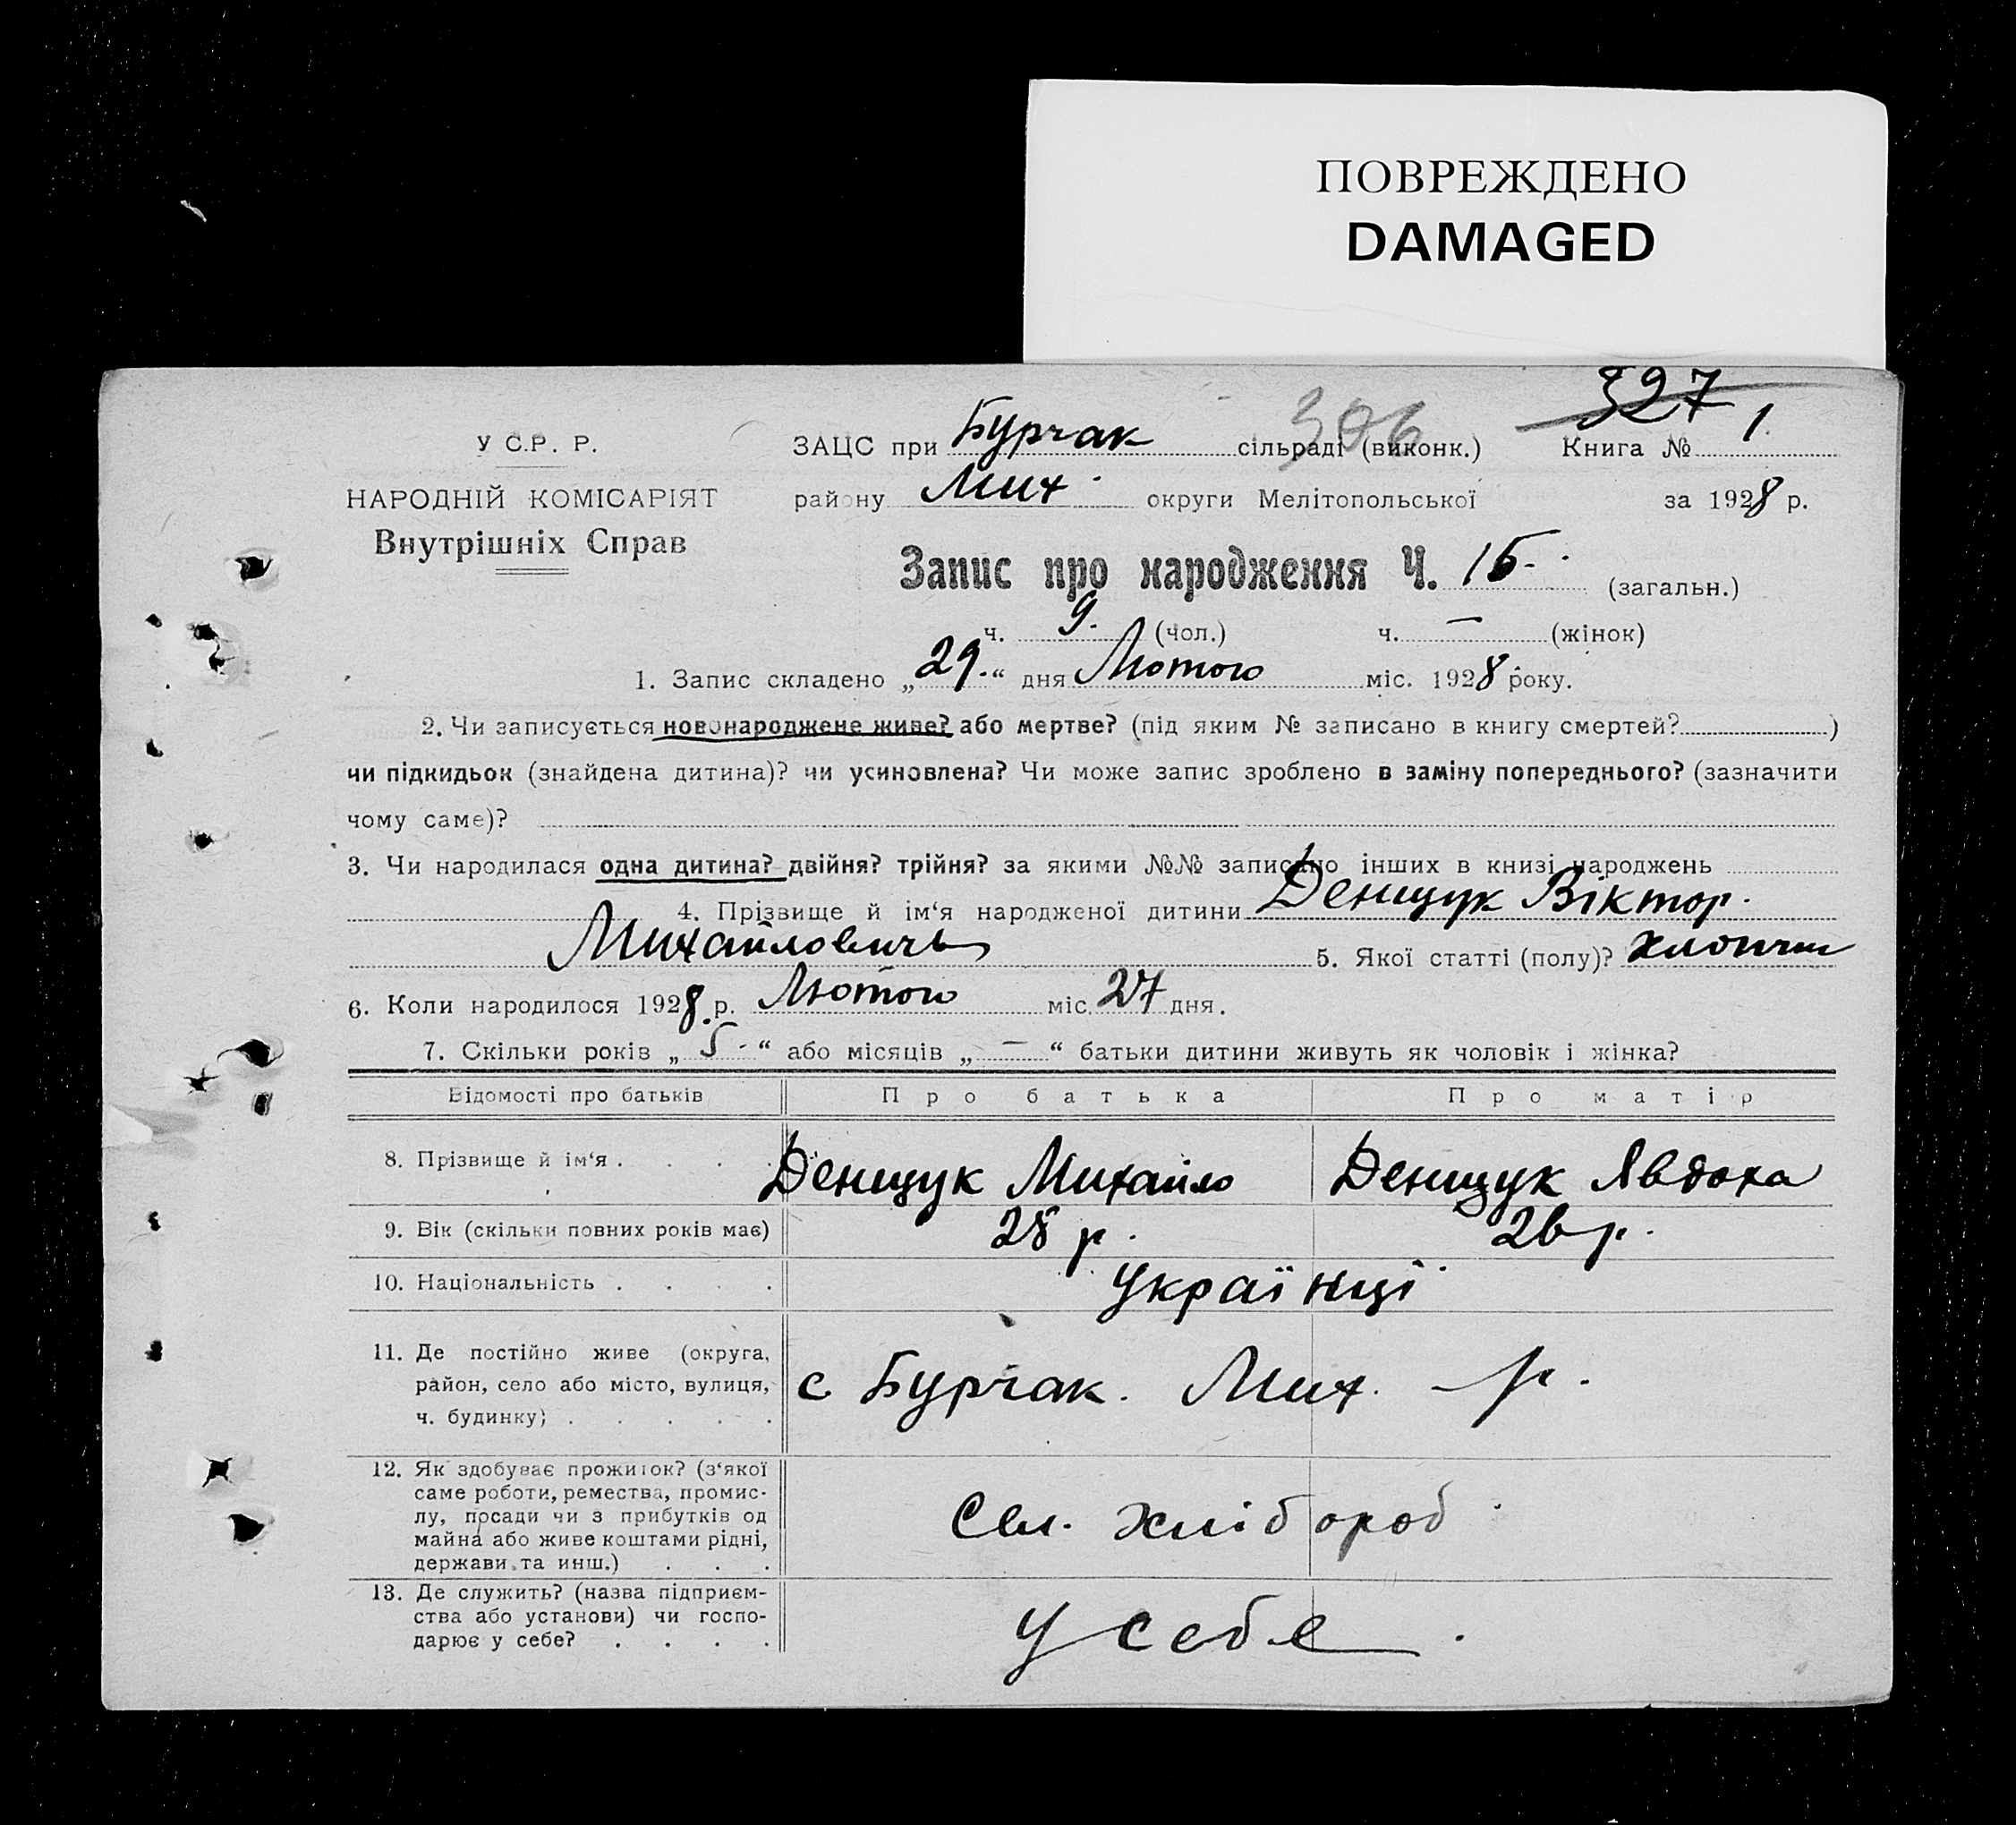 ПОВРЕЖДЕНО
DAMAGED
327
306
У С.Р. Р.
ЗАЦС при Бурчак сільраді (виконк.) Книга № 1
НАРОДНІЙ КОМІСАРІЯТ
району Мих. округи Мелітопольської за 1928 р.
Внутрішніх Справ
Запис про народження Ч. 15. (загальн.)
ч. 9. (чол.) ч. — (жінок)
1. Запис складено „29.“ дня Лютого міс. 1928 року.
2. Чи записується новонароджене живе? або мертве? (під яким № записано в книгу смертей? )
чи підкидьок (знайдена дитина)? чи усиновлена? Чи може запис зроблено в заміну попереднього? (зазначити
чому саме)?
3. Чи народилася одна дитина? двійня? трійня? за якими №№ записано інших в книзі народжень
4. Прізвище й ім‘я народженої дитини Денщук Віктор.
Михайловичь 5. Якої статті (полу)? хлопчик
6. Коли народилося 1928 р. Лютого міс. 27 дня.
7. Скільки років „ 5 - “ або місяців „ — “ батьки дитини живуть як чоловік і жінка?
Відомості про батьків Про батька Про матір
8. Прізвище й ім‘я . . . . Денщук Михайло Денщук Явдоха
9. Вік (скільки повних років має) 28 р. 26 р.
10. Національність . . . . Українці
11. Де постійно живе (округа,
район, село або місто, вулиця, с Бурчак. Мих. р.
ч. будинку) . . . . .
12. Як здобуває прожиток? (з‘якої
саме роботи, ремества, промис-
лу, посади чи з прибутків од Сел. хлібороб
майна або живе коштами рідні,
держави та инш.) . . .
13. Де служить? (назва підприєм-
ства або установи) чи госпо- У себе.
дарює у себе? . . . .